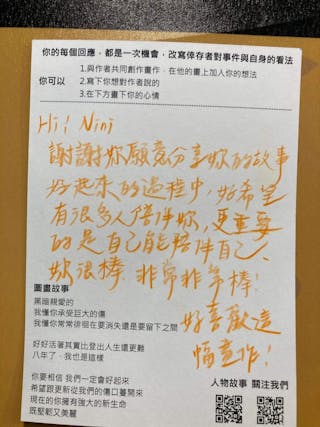 你的每個回應，都是一次機會，改寫倖存者對事件與自身的看法
你可以
1.與作者共同創作畫作，在他的畫上加入你的想法
2.寫下你想對作者說的
3.在下方畫下你的心情
Hi! Nini
謝謝妳願意分享妳的故事
好起來的過程中，好希望
有很多人陪伴妳，更重要
的是自己能陪伴自己、
妳很棒，非常非常棒！
好喜歡這
幅畫作！
圖畫故事
黑暗親愛的
我懂你承受巨大的傷
我懂你常常徘徊在要消失還是要留下之間
好好活著其實比登出人生還更難
八年了，我也是這樣
你要相信 我們一定會好起來
希望跟更新從我們的傷口蔓開來
現在的你擁有強大的新生命
既堅韌又美麗
人物故事 關注我們